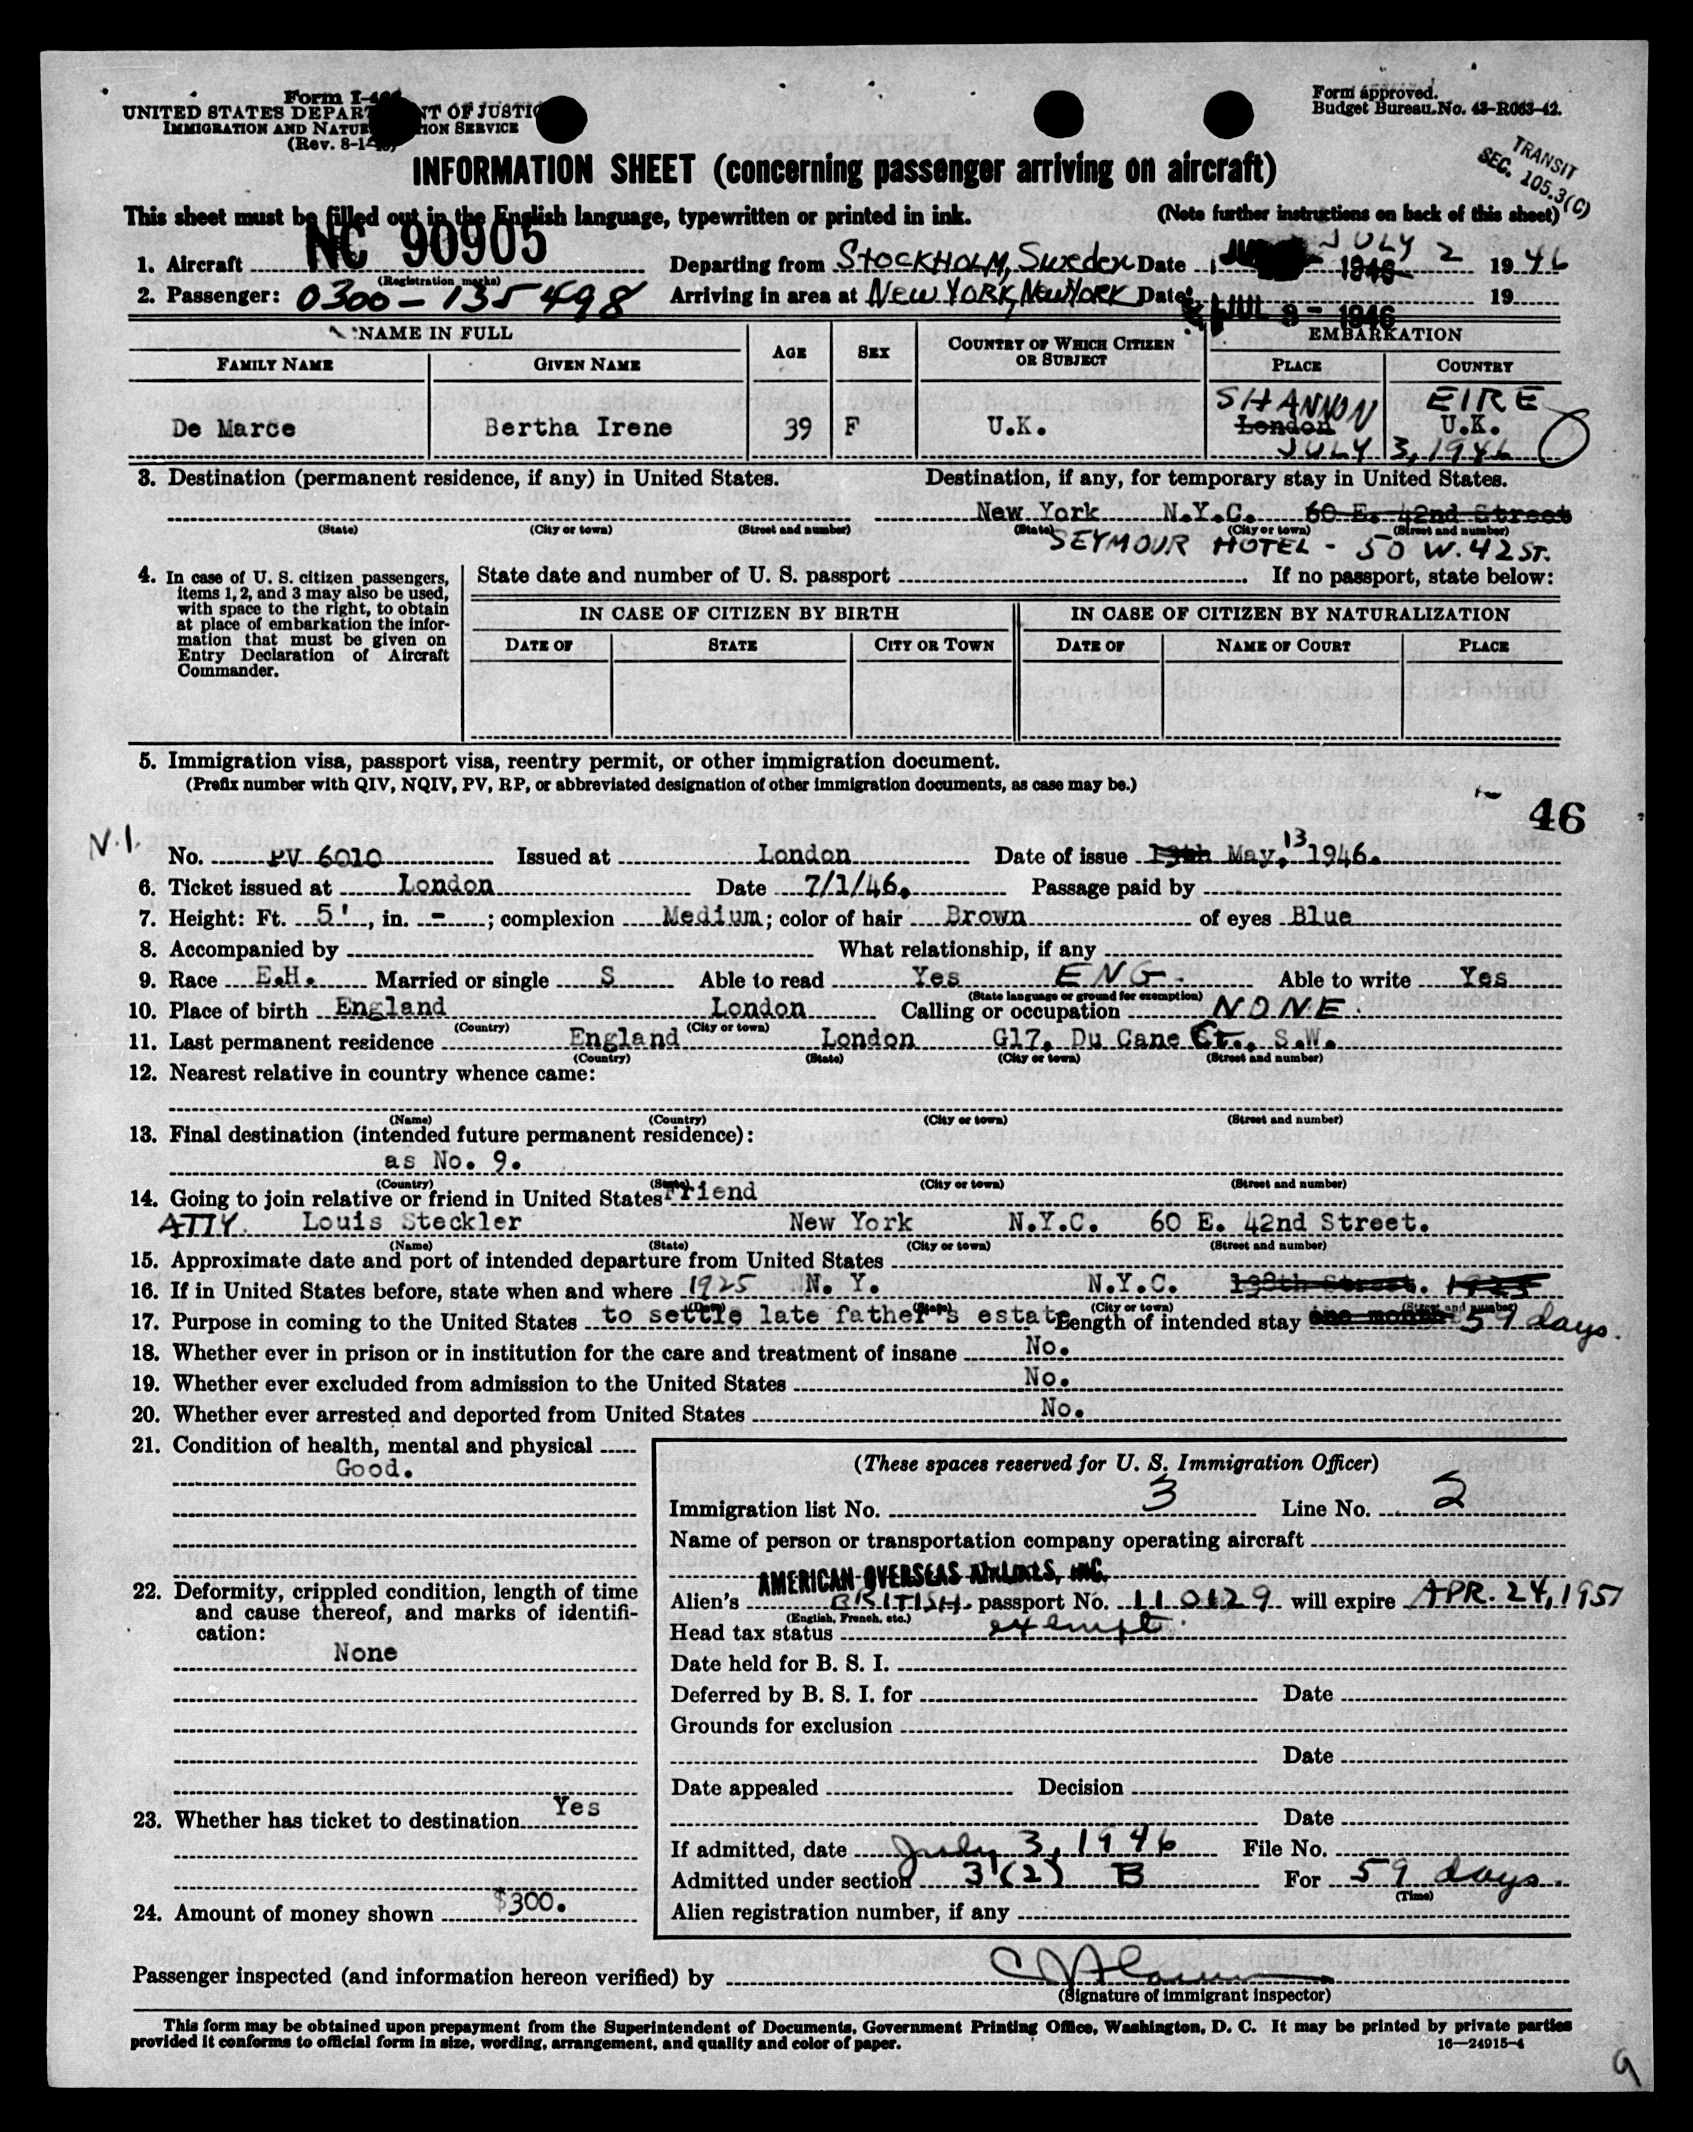 Form I-
UNITED STATES DEPARTMENT OF JUSTICE
IMMIGRATION AND NATURALIZATION SERVICE
(Rev. 8-1-
Form approved.
Budget Bureau No. 43-R063-42.
TRANSIT
SEC. 105.3(C)
INFORMATION SHEET (concerning passenger arriving on aircraft)
This sheet must be filled out in the English language, typewritten or printed in ink. (Note further instructions on back of this sheet)
1. Aircraft NC 90905 Departing from STOCKHOLM, Sweden Date JULY 2 1946 1946
(Registration marks)
2. Passenger: 0300-135498 Arriving in area at NEW YORK, NEW YORK Date JUL 3 - 1946 19
NAME IN FULL AGE SEX COUNTRY OF WHICH CITIZEN OR SUBJECT EMBARKATION
FAMILY NAME GIVEN NAME PLACE COUNTRY
SHANNON EIRE
De Marce Bertha Irene 39 F U.K. London U.K.
JULY 3, 1946
3. Destination (permanent residence, if any) in United States. Destination, if any, for temporary stay in United States.
New York N.Y.C. 60 E. 42nd Street
(State) (City or town) (Street and number) (State) (City or town) (Street and number)
SEYMOUR HOTEL - 50 W. 42 ST.
4. In case of U. S. citizen passengers, items 1, 2, and 3 may also be used, with space to the right, to obtain at place of embarkation the information that must be given on Entry Declaration of Aircraft Commander.
State date and number of U. S. passport . If no passport, state below:
IN CASE OF CITIZEN BY BIRTH IN CASE OF CITIZEN BY NATURALIZATION
DATE OF STATE CITY OR TOWN DATE OF NAME OF COURT PLACE
5. Immigration visa, passport visa, reentry permit, or other immigration document.
(Prefix number with QIV, NQIV, PV, RP, or abbreviated designation of other immigration documents, as case may be.)
46
V.1. No. PV 6010 Issued at London Date of issue 13th May, 13 1946.
6. Ticket issued at London Date 7/1/46. Passage paid by
7. Height: Ft. 5', in. -; complexion Medium; color of hair Brown of eyes Blue
8. Accompanied by What relationship, if any
9. Race E.H. Married or single S Able to read Yes ENG. Able to write Yes
(State language or ground for exemption)
10. Place of birth England London Calling or occupation NONE.
(Country) (City or town)
11. Last permanent residence England London G17, Du Cane Ct., S.W.
(Country) (State) (City or town) (Street and number)
12. Nearest relative in country whence came:
(Name) (Country) (City or town) (Street and number)
13. Final destination (intended future permanent residence):
as No. 9.
(Country) (State) (City or town) (Street and number)
14. Going to join relative or friend in United States Friend
ATTY. Louis Steckler New York N.Y.C. 60 E. 42nd Street.
(Name) (State) (City or town) (Street and number)
15. Approximate date and port of intended departure from United States
16. If in United States before, state when and where 1925 N. Y. N.Y.C. 138th Street. 1925
(Date) (State) (City or town) (Street and number)
17. Purpose in coming to the United States to settle late father's estate Length of intended stay one month 59 days.
18. Whether ever in prison or in institution for the care and treatment of insane No.
19. Whether ever excluded from admission to the United States No.
20. Whether ever arrested and deported from United States No.
21. Condition of health, mental and physical
Good.
22. Deformity, crippled condition, length of time and cause thereof, and marks of identification:
None
23. Whether has ticket to destination Yes
24. Amount of money shown $300.
(These spaces reserved for U. S. Immigration Officer)
Immigration list No. 3 Line No. 2
Name of person or transportation company operating aircraft
AMERICAN OVERSEAS AIRLINES, INC.
Alien's BRITISH passport No. 110129 will expire APR. 24, 1951
(English, French, etc.)
Head tax status exempt.
Date held for B. S. I.
Deferred by B. S. I. for Date
Grounds for exclusion
Date
Date appealed Decision
Date
If admitted, date July 3, 1946 File No.
Admitted under section 3 (2) B For 59 days.
(Time)
Alien registration number, if any
Passenger inspected (and information hereon verified) by
(Signature of immigrant inspector)
This form may be obtained upon prepayment from the Superintendent of Documents, Government Printing Office, Washington, D. C. It may be printed by private parties
provided it conforms to official form in size, wording, arrangement, and quality and color of paper. 16—24915-4
9